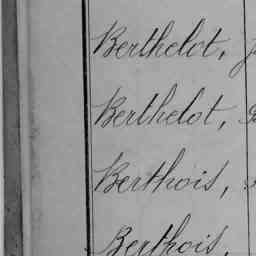 Berthelot,
Berthelot,
Berthois,
Berthois,